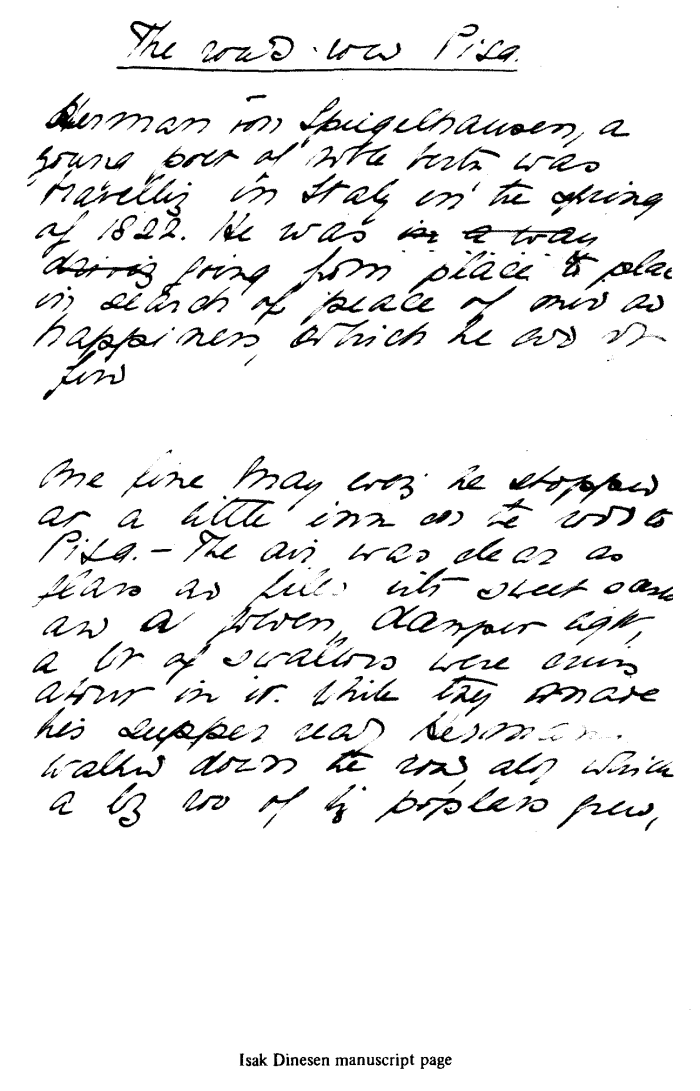 The road row Pisa.
Herman von Spiegelhausen, a
young poet of noble birth was
travelling in Italy in the spring
of 1822. He was in a way
going from place to place
in search of peace of mind and
happiness, which he did not
find
One fine May evening he stopped
at a little inn on the road to
Pisa. – The air was clear as
glass and filled with sweet
and a golden, light,
a lot of swallows were
about in it. While they made
his supper ready Herman
walked down the road, along which
a big row of big poplars grew,
Isak Dinesen manuscript page